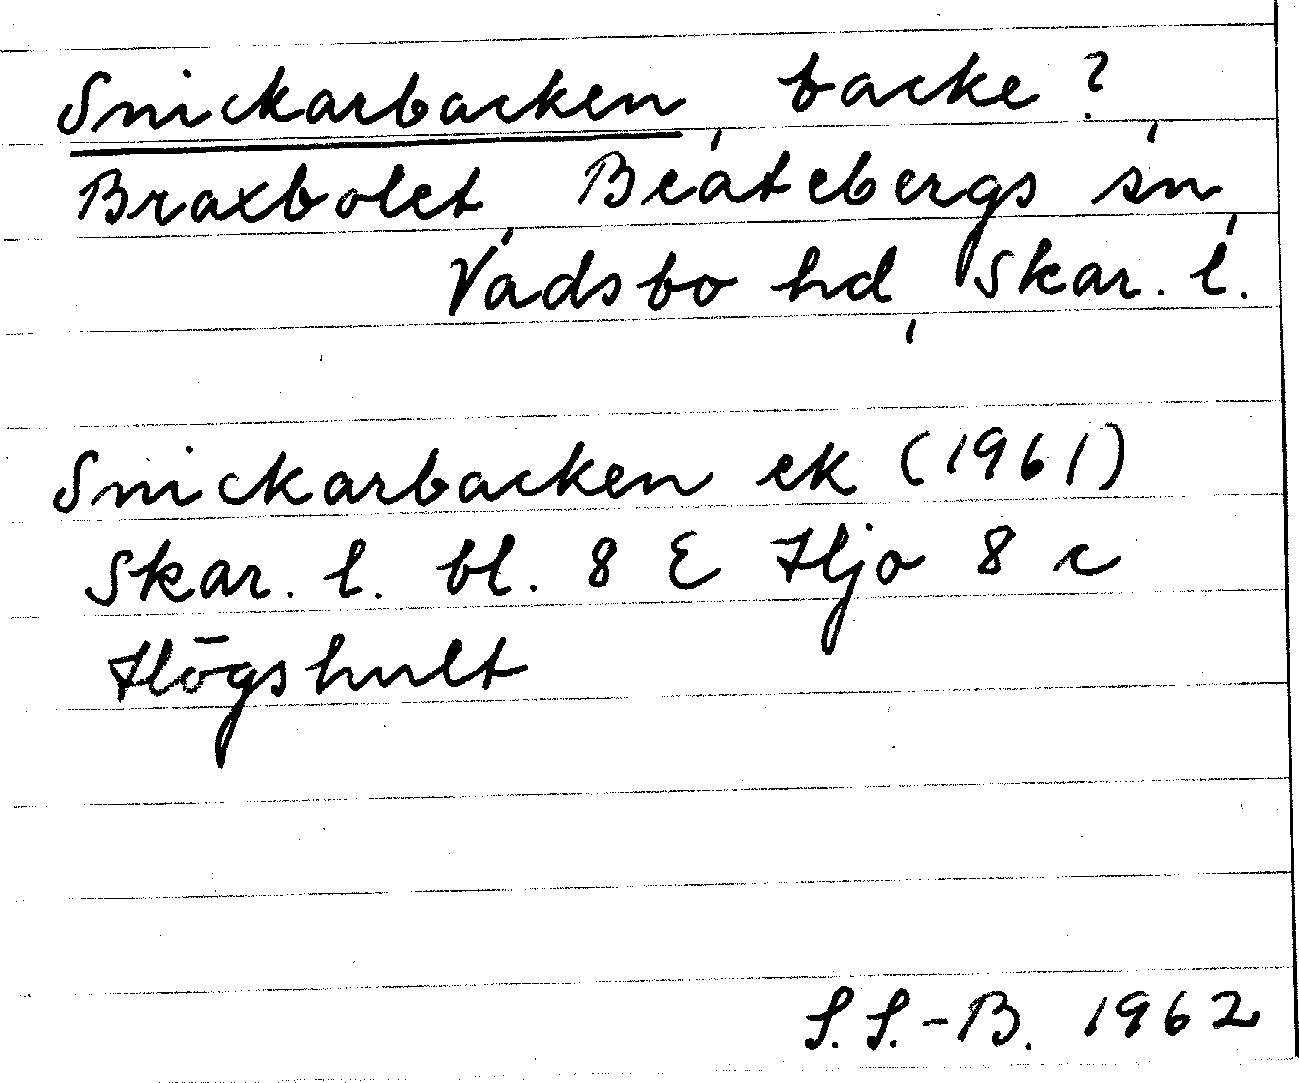 Snickarbacken, backe?,
Braxbolet, Beatebergs sn,
Vadsbo hd, Skar. l.
Snickarbacken ek (1961)
Skar. l. bl. 8 E Hjo 8 c
Högshult
S. S.-B. 1962